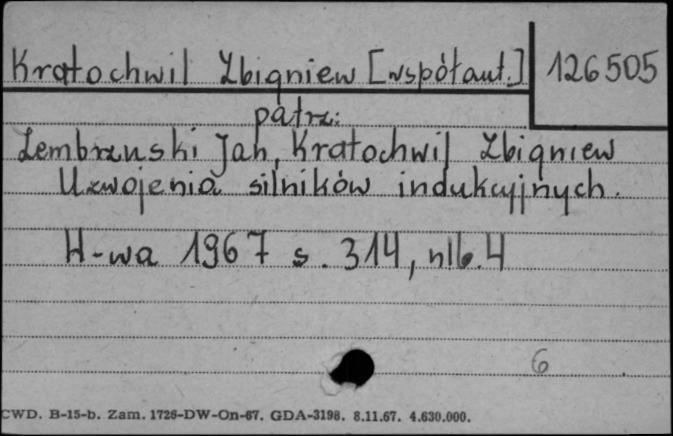 Kratochwil Zbigniew [współaut.] 126505
patrz:
Zembrzuski Jan, Kratochwil Zbigniew
Uzwojenia silników indukcyjnych.
W-wa 1967 s. 314, nlb. 4
6
CWD. B-15-b. Zam. 1726-DW-On-67. GDA-3198. 8.11.67. 4.630.000.